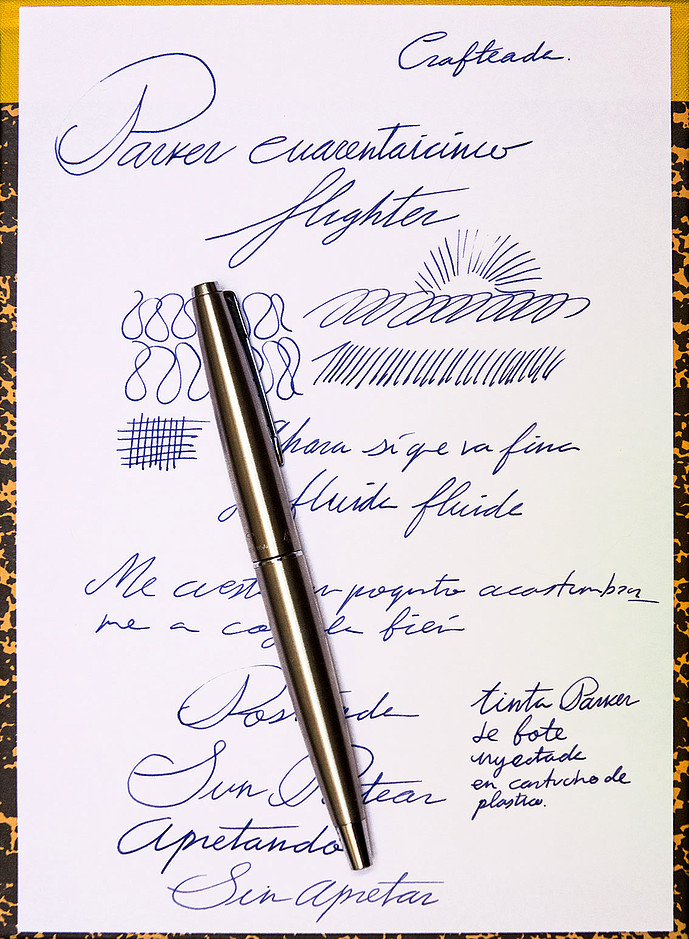 Crafteada.
Parker cuarentaicinco
flighter
Ahora sí que va fina
fluida fluida
Me cuesta un poquito acostumbrar
me a cogerla bien
Posteada
Sin Postear
Apretando
Sin apretar
tinta Parker
de bote
inyectada
en cartucho de
plastico.